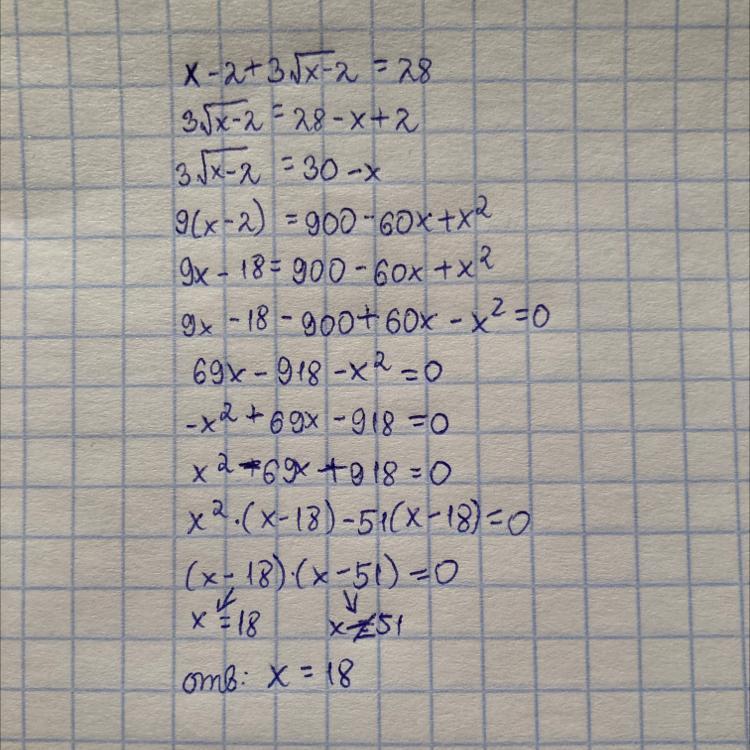 x-2+3√x-2 = 28
3√x-2 = 28-x+2
3√x-2 = 30-x
9(x-2) = 900-60x+x²
9x-18 = 900-60x+x²
9x-18-900+60x-x²=0
69x-918-x²=0
-x²+69x-918=0
x²-69x+918=0
x²·(x-18)-51(x-18)=0
(x-18)·(x-51)=0
x=18 x≠51
отв: x=18